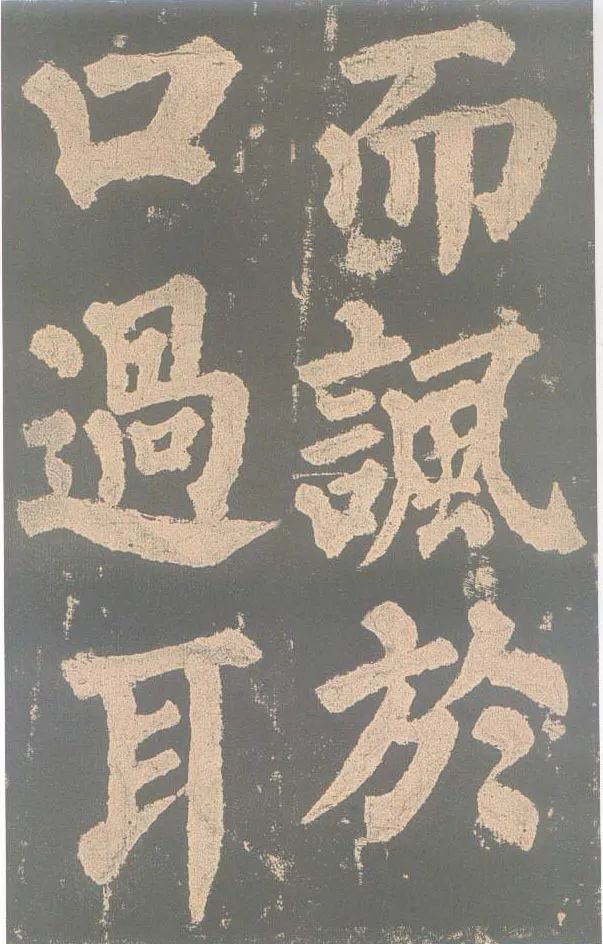 而諷於
口過耳